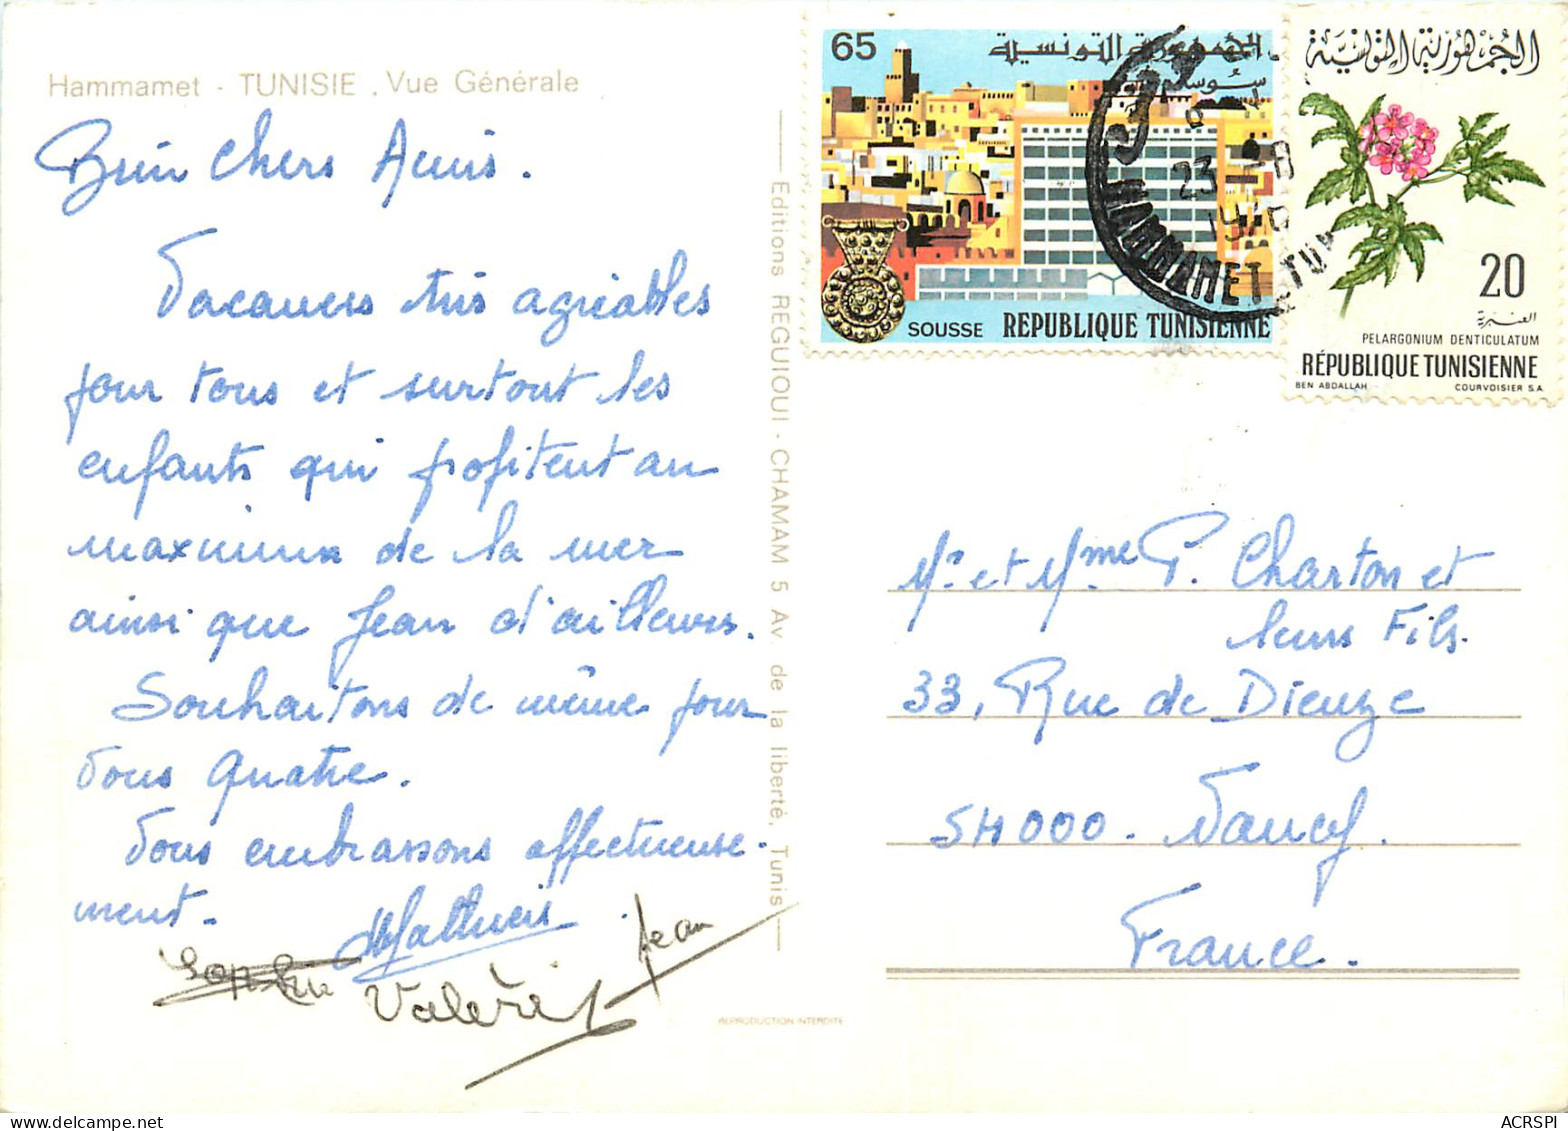 Hammamet - TUNISIE . Vue Générale
Bien Chers Amis.
Vacances très agréables
pour tous et surtout les
enfants qui profitent au
maximum de la mer
ainsi que Jean d'ailleurs.
Souhaitons de même pour
Vous Quatre.
Vous embrassons affectueuse-
ment.
Sophie Valérie Jean
Editions REGUIOUI - CHAMAM 5 Av. de la liberté, Tunis
REPRODUCTION INTERDITE
65
الجمهورية التونسية
سوسة
SOUSSE REPUBLIQUE TUNISIENNE
23 -8
HAMMAMET
الجمهورية التونسية
20
العنبرية
PELARGONIUM DENTICULATUM
RÉPUBLIQUE TUNISIENNE
BEN ABDALLAH COURVOISIER S.A.
Mr et Mme P. Charton et
leurs Fils.
33, Rue de Dieuze
54000 - Nancy.
France.
ACRSPI